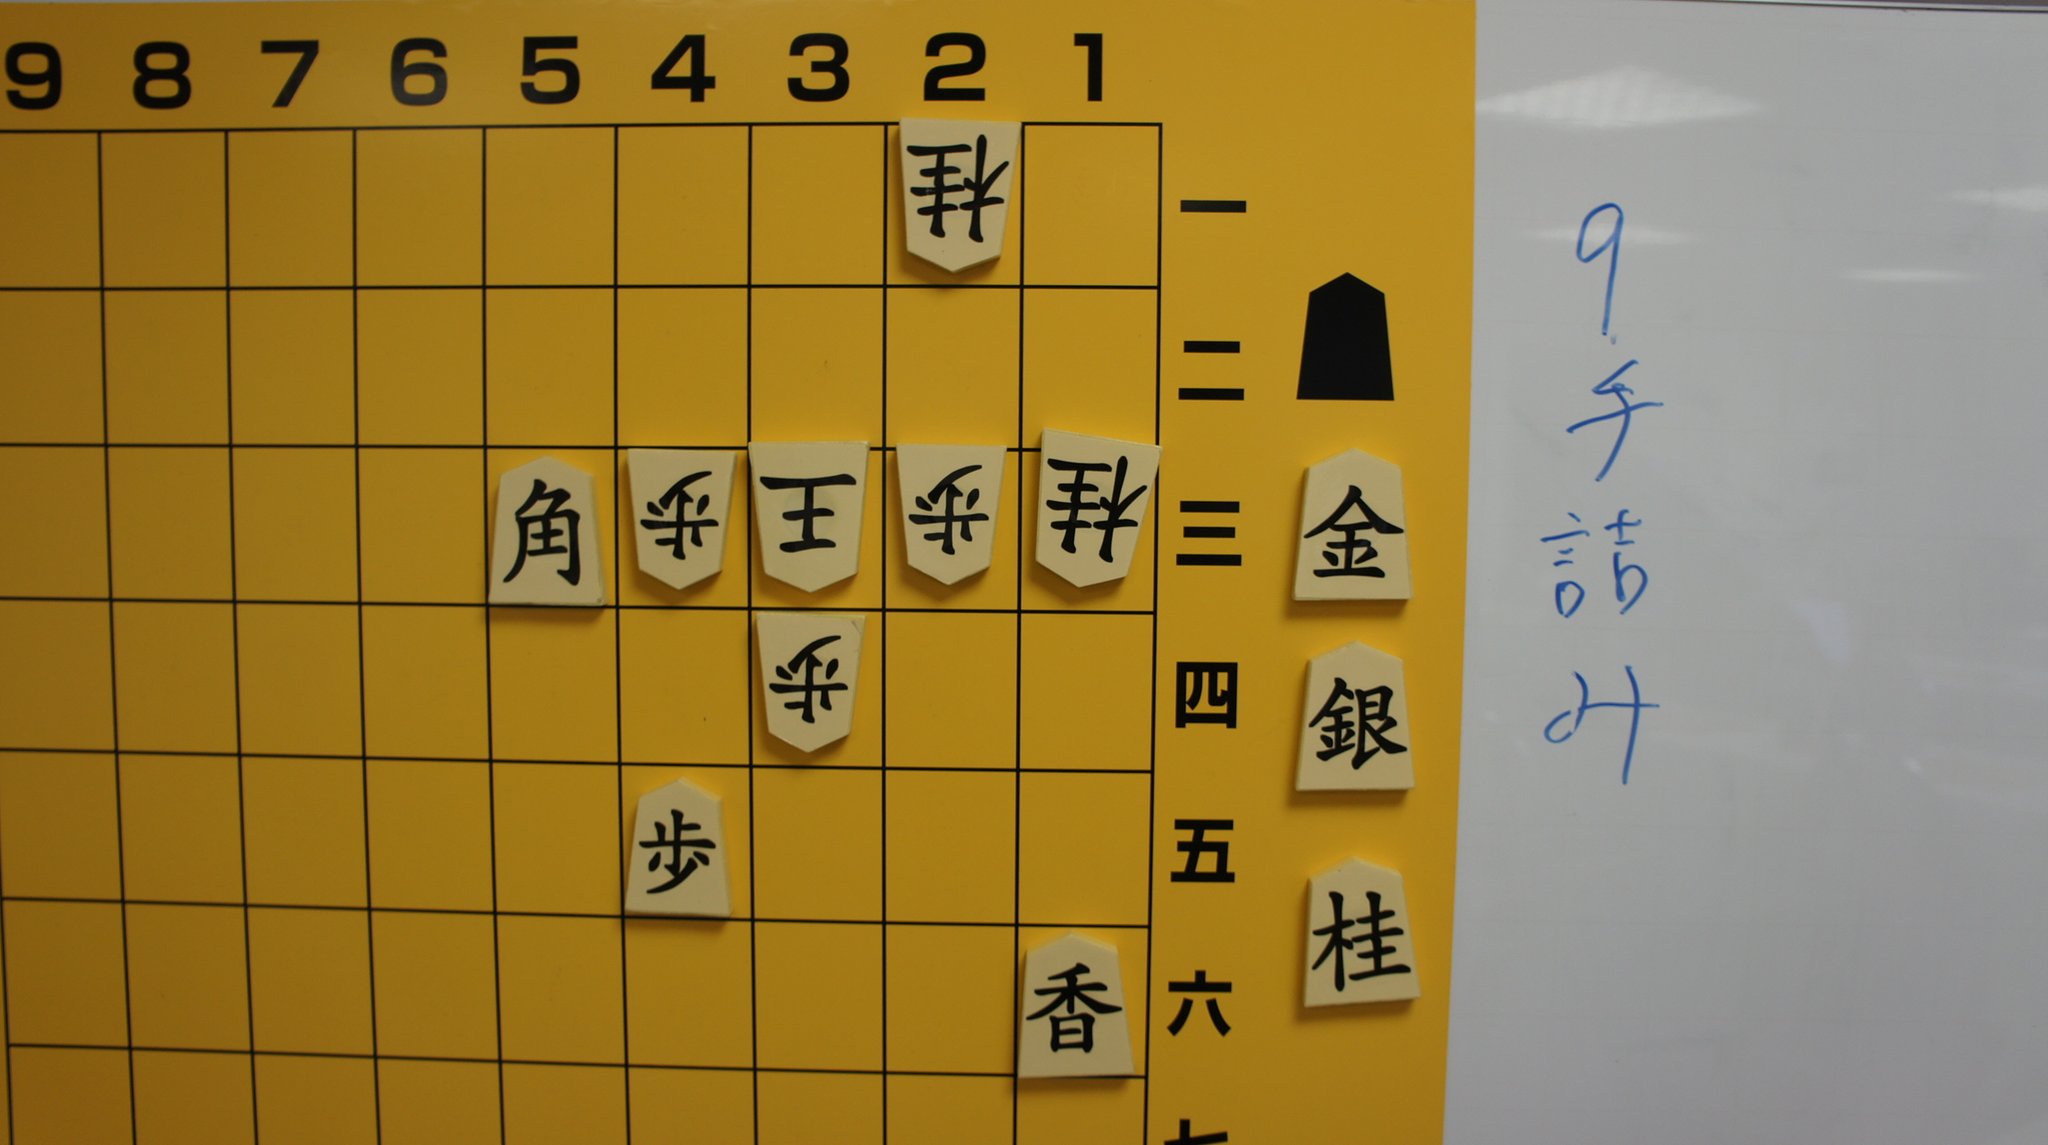 9 8 7 6 5 4 3 2 1
桂 一
二
角 歩 王 歩 桂 三 金
歩 四 銀
歩 五 桂
香 六
七
9手詰み